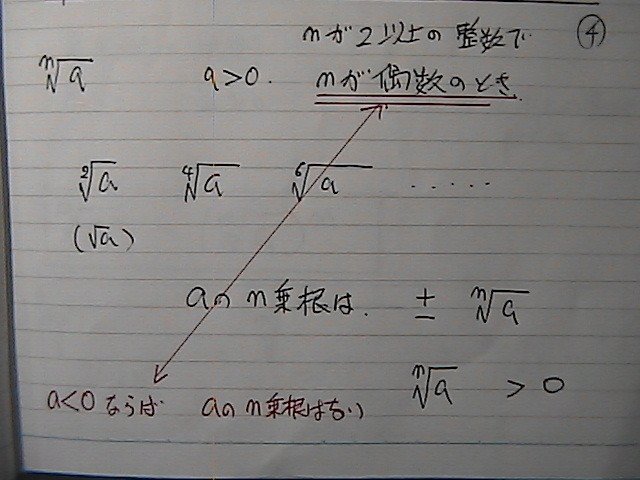 nが2以上の整数で ④
ⁿ√a a>0. nが偶数のとき.
²√a ⁴√a ⁶√a ‥‥‥
(√a)
aのn乗根は. ± ⁿ√a
ⁿ√a > 0
a<0ならば aのn乗根はない